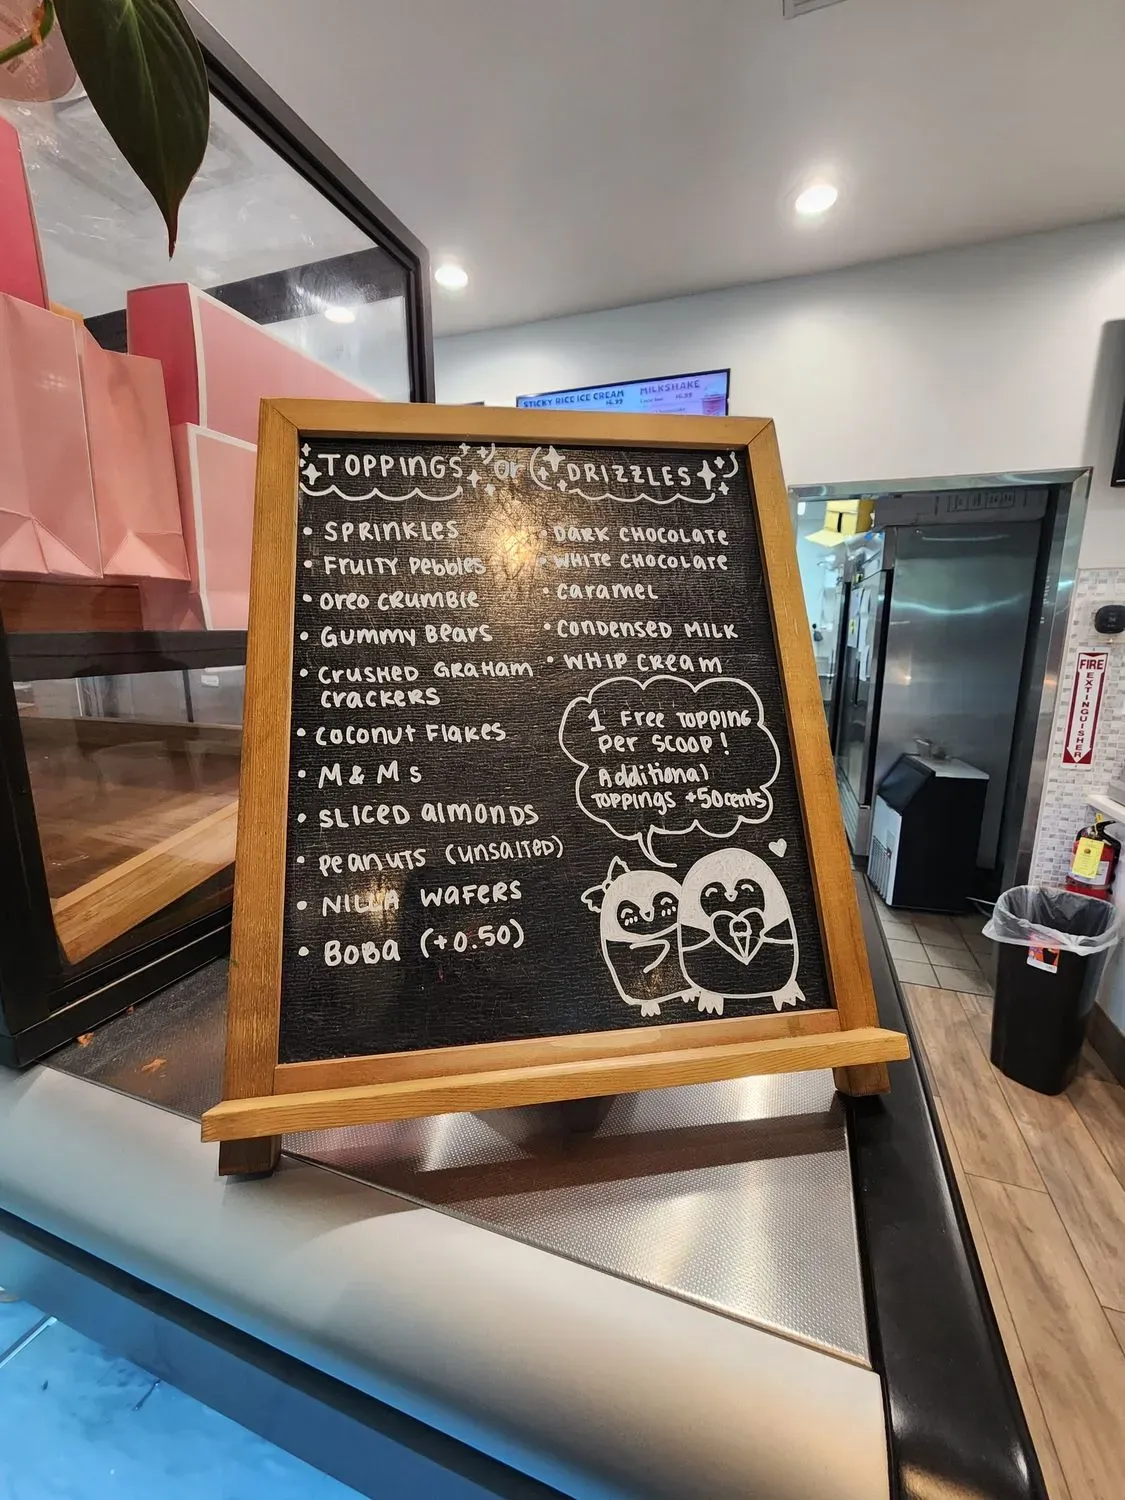 STICKY RICE ICE CREAM
$6.99
MILKSHAKE
$6.99
TOPPINGS or DRIZZLES
• SPRINKLES
• FRUITY PEBBLES
• OREO CRUMBLE
• GUMMY BEARS
• CRUSHED GRAHAM
CRACKERS
• COCONUT FLAKES
• M & M s
• SLICED ALMONDS
• PEANUTS (UNSALTED)
• NILLA WAFERS
• BOBA (+0.50)
• DARK CHOCOLATE
• WHITE CHOCOLATE
• CARAMEL
• CONDENSED MILK
• WHIP CREAM
1 FREE TOPPING
PER SCOOP!
Additional
TOPPINGS +50cents
FIRE
EXTINGUISHER